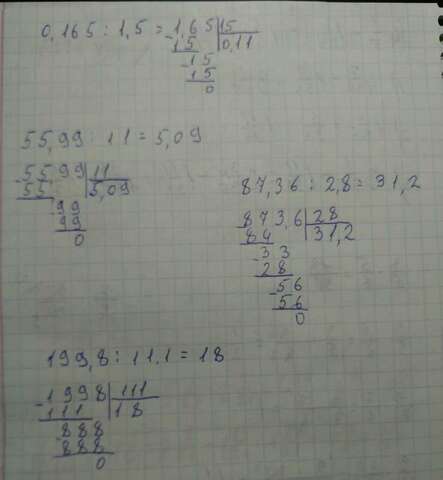 0,165 : 1,5 = 1,65 | 15
- 15 | 0,11
- 15
15
0
55,99 : 11 = 5,09
- 55,99 | 11
55 | 5,09
- 99
99
0
87,36 : 2,8 = 31,2
- 873,6 | 28
84 | 31,2
- 33
28
- 56
56
0
199,8 : 11,1 = 18
- 1998 | 111
111 | 18
- 888
888
0